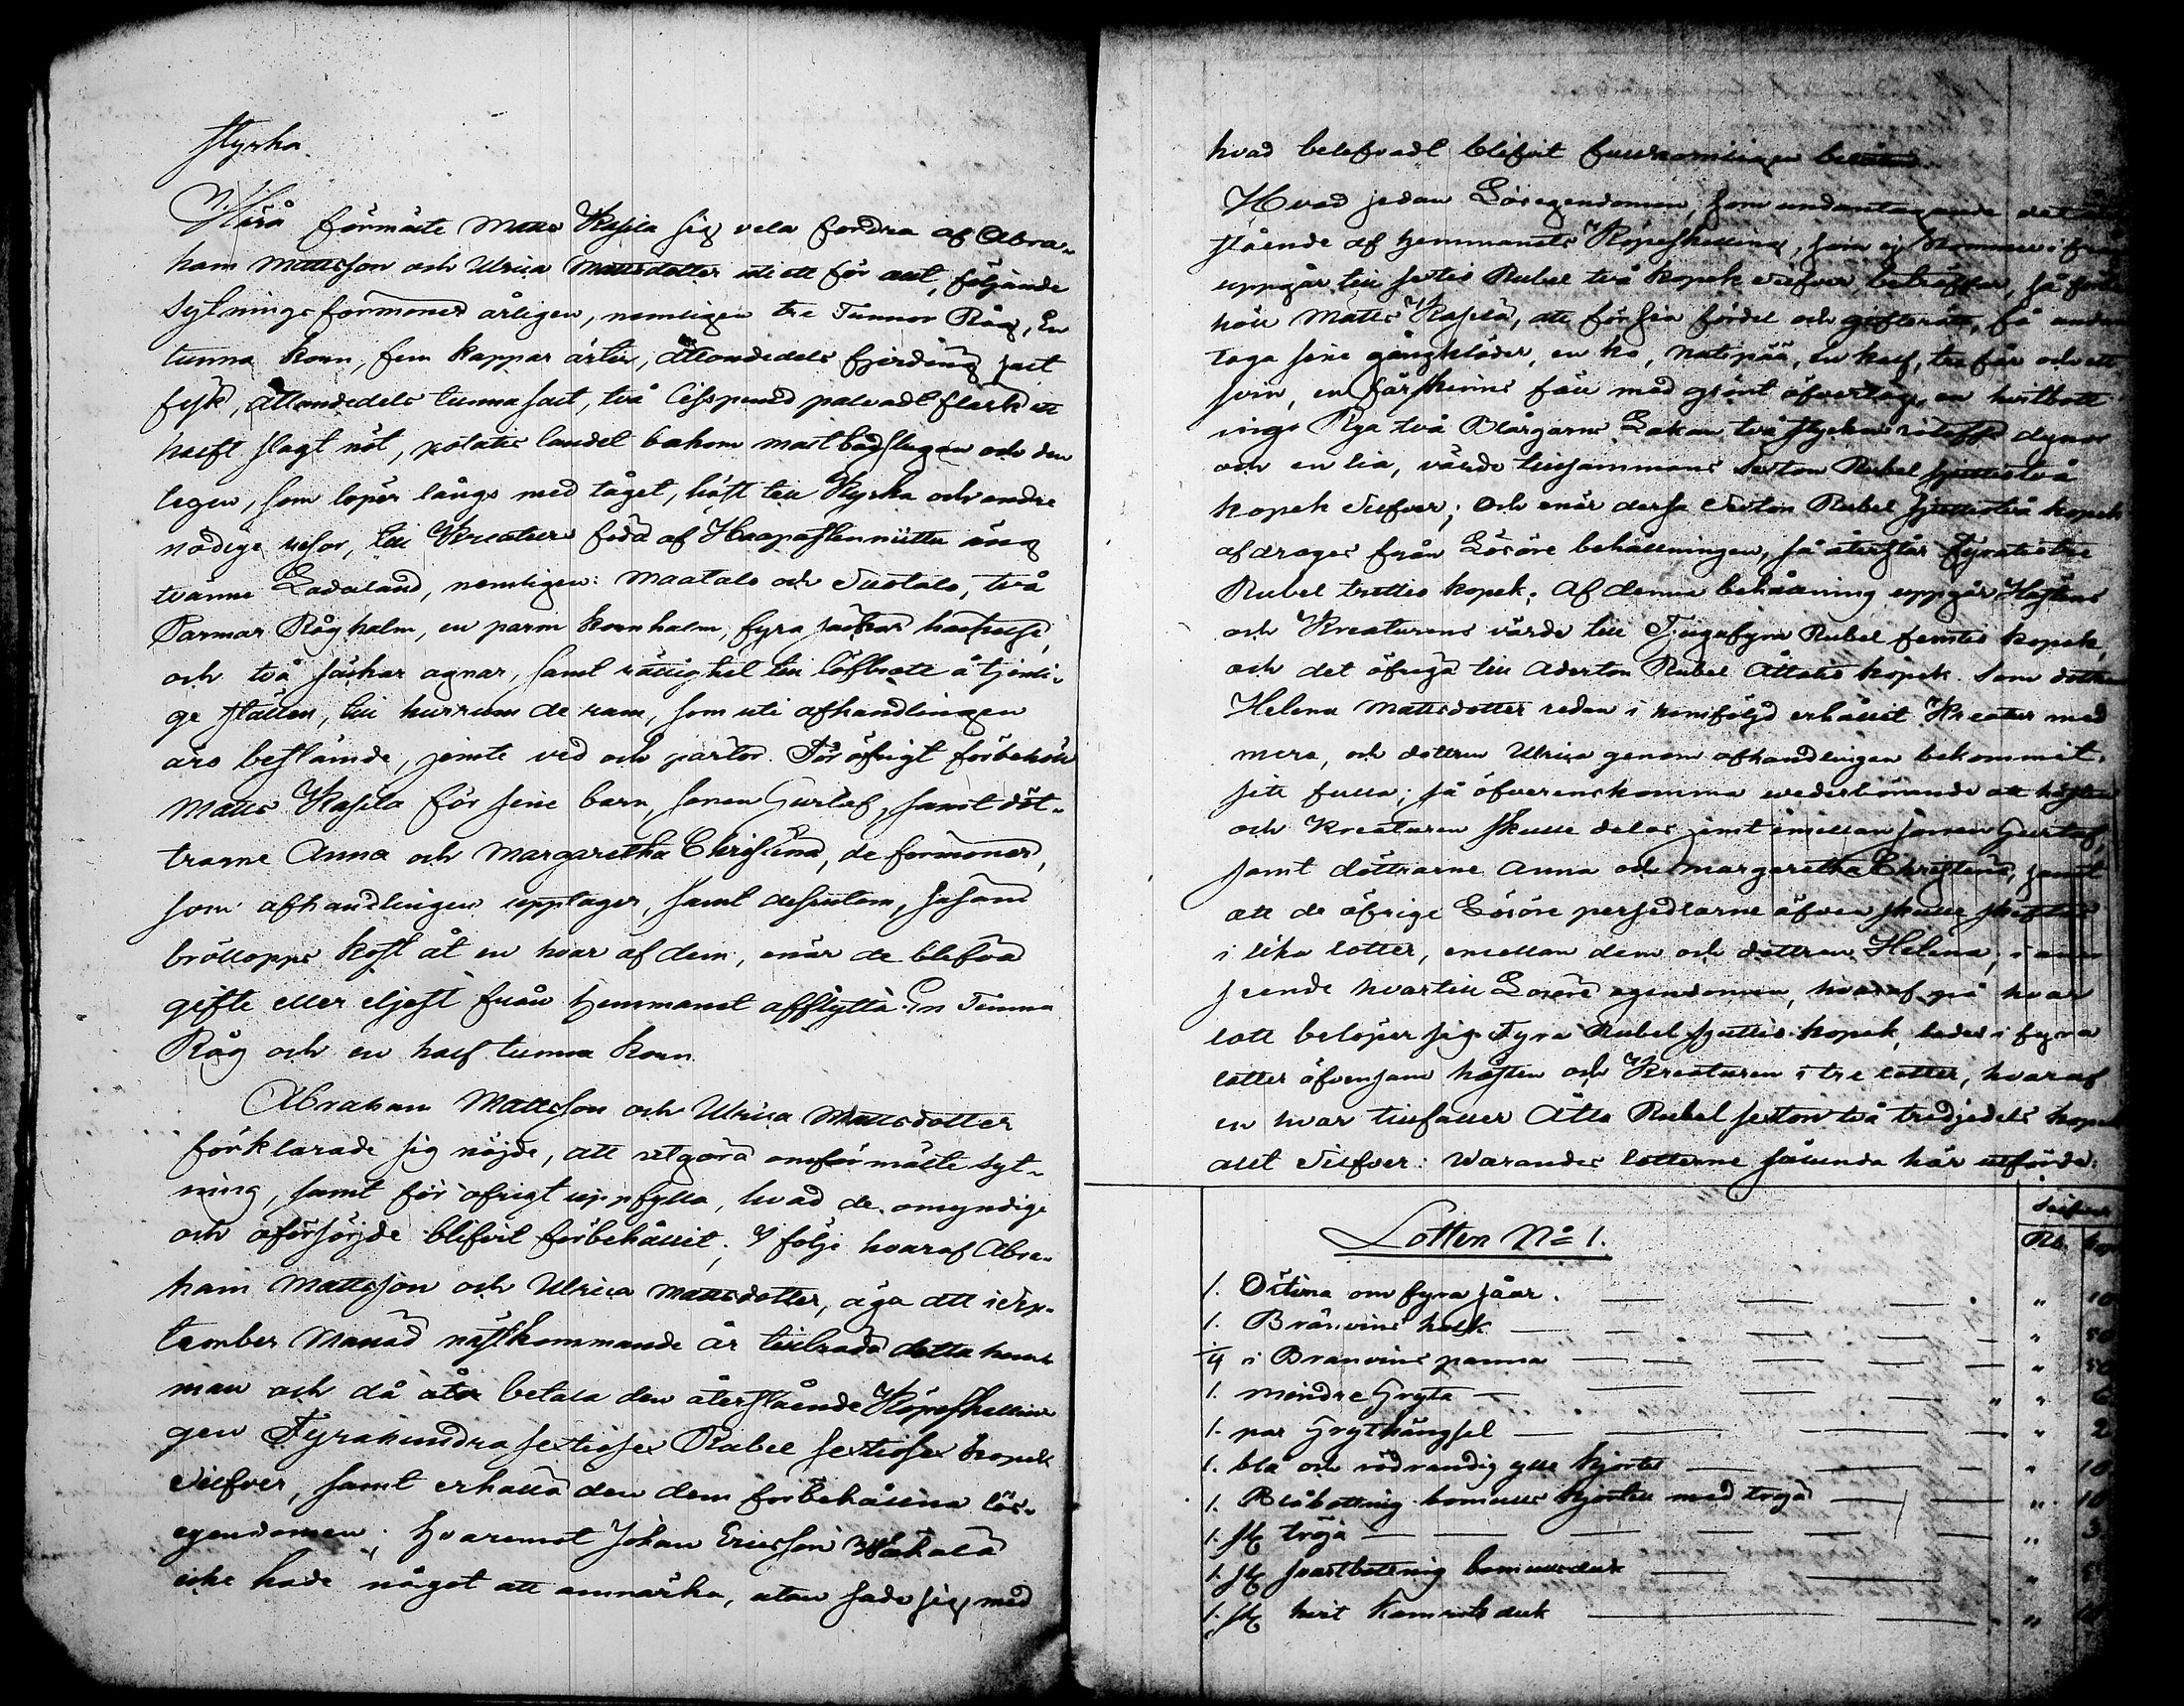 styrka.
Härå förmäte Matts Kasila sig vela fordra af Abra-
ham Mattsson och Ulrica Mattsdotter uti ett för allt, följande
Sytningsförmoner årligen, nemligen tre Tunnor Råg, En
tunna Korn, fem kappar ärter, åttondedels fjerding salt
fisk, åttondedels tunna salt, två Lispund palvadt flask ett
halft slagt nöt, potatis landet bakom matbodslugan och den
tegen, som löper långs med tåget, häst till Kyrka och andre
nödige resor, till Kreaturs föda af Haapastenniittu äng
tvänne Ladaland, nemligen: Maatalo och Suotalo, två
Parmar Råghalm, en parm Kornhalm, fyra säckar
och två säckar agnar, samt rättighet till löfbrott å tjenli-
ge ställen, till husrum de rum, som uti afhandlingen
äro bestämde, jemte ved och pärtor. För öfrigt förbehöll
Matts Kasila för sine barn, sonen Gustaf, samt döt-
trarne Anna och Margaretha Christina, de förmoner,
som afhandlingen upptager, samt desutom, såsom
bröllops kost åt en hvar af dem, enär de blefvo
gifte eller eljest från hemmanet afflytta En Tunna
Råg och en half tunna Korn.
Abraham Mattsson och Ulrica Mattsdotter
förklarade sig nöjde, att utgöra omförmälte syt-
ning, samt för öfrigt uppfylla, hvad de omyndige
och oförsörjde blifvit förbehållit; I följe hvaraf Abra-
ham Mattsson och Ulrica Mattsdotter, äga att i Sep-
tember Månad nästkommande år tillträda detta hem-
man och då åter betala den återstående Köpeskillin-
gen Fyrahundra sextiosex Rubel sextiosex kopek
Silfver, samt erhålla den dem förbehållna lös-
egendomen; hvaremot Johan Ericsson
icke hade något att anmärka, utan sade sig med
hvad belefvadt blifvit fullkomligen
Hvad sedan Lösegendomen, som undantagande det åter
stående af hemmanets Köpeskilling, som ej kommer i
uppgår till sextio Rubel två kopek silfver, beträffar, så förbe
höll Matts Kasila, att för sin fördel och giftorätt, få undan
taga sine gångkläder, en ko, en kalf, tre får och ett
svin, en fårskinns fäll med grönt öfvertåg, en hvitbott
nings Rya två Blårgarns Lakan två stycken dynor
och en lia, värde tillsammans Sexton Rubel sjuttiotvå
kopek Silfver; Och enär dessa Sexton Rubel sjuttiotvå kopek
afdrages från Lösöre behållningen, så återstår Fyratiotre
Rubel trettio kopek. Af denna behållning uppgår Hästens
och Kreaturens värde till Tjugufyra Rubel femtio kopek,
och det öfriga till Aderton Rubel Åttatio kopek. Som dottren
Helena Mattsdotter redan i hemföljd erhållit Kreatur med
mera, och dottren Ulrica genom afhandlingen bekommit
sitt fulla; så öfverenskomma vederbörande att hästen
och Kreaturen skulle delas jemt emellan sonen Gustaf,
samt döttrarne Anna och Margaretha Christina, samt
att de öfrige Lösöre persedlarne äfven skulle skiftas
i lika lotter, emellan dem och dottren Helena, i an-
seende hvartill Lösöre egendomen, hvaraf på hvar
lott belöper sig Fyra Rubel sjuttio kopek, lades i fyra
lotter äfvensom hästen och Kreaturen i tre lotter, hvaraf
en hvar tillfaller Åtta Rubel sexton två tredjedels kopek
allt Silfver: Warandes lotterne sålunda här utförde:
Silfver
Lotten No 1.
Rb. kop
1. Ottima om fyra såar. " 10
1. Bränvins halk " 50
1/4 i Bränvins panna " 50
1. mindre Gryta " 6
1. par Grythängsel " 2
1. blå och rödrandig ylle kjortel " 10
1. Blåbottnig bomulls kjortel med tröja " 10
1. st tröja " 3
1. st svartbottnig bomullsduk "
1. st hvit Kamrits duk "